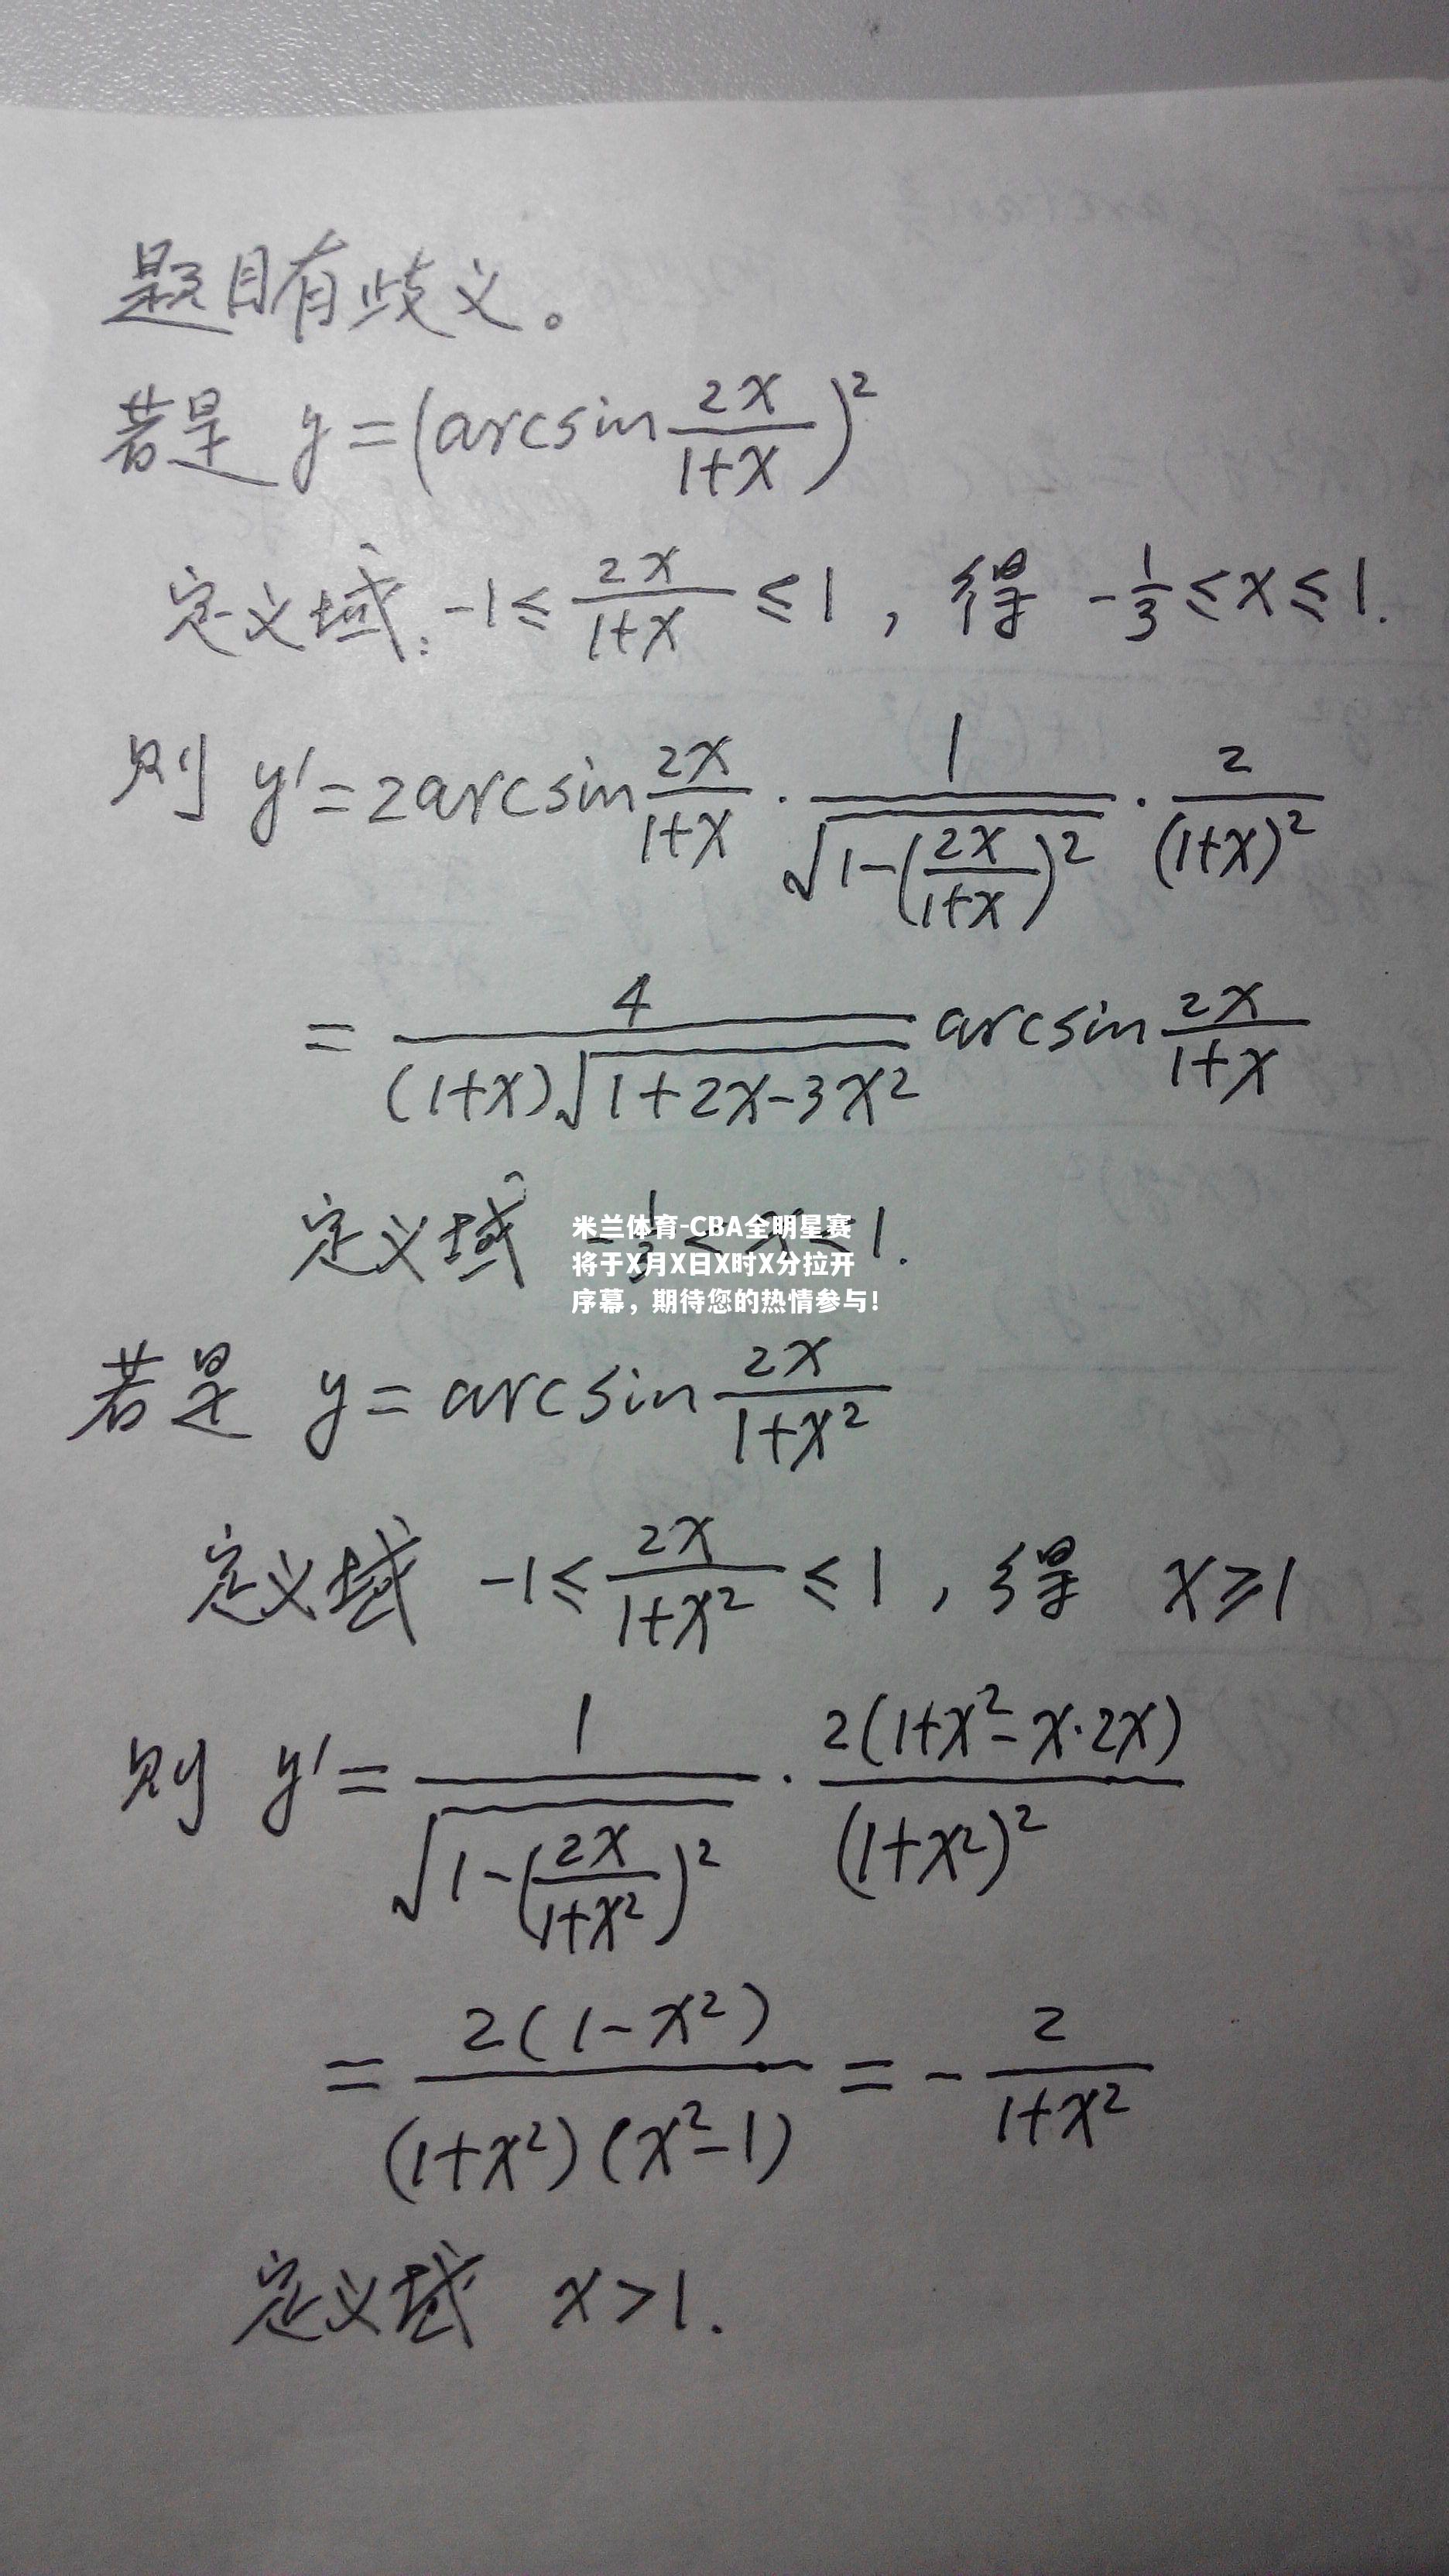 题目有歧义。
若是 y=(arcsin 2x/(1+x))²
定义域: -1≤2x/(1+x)≤1, 得 -1/3≤x≤1.
则 y'=2arcsin 2x/(1+x) · 1/√(1-(2x/(1+x))²) · 2/(1+x)²
= 4/((1+x)√(1+2x-3x²)) arcsin 2x/(1+x)
定义域 -1/3<x<1.
米兰体育-CBA全明星赛
将于X月X日X时X分拉开
序幕，期待您的热情参与！
若是 y=arcsin 2x/(1+x²)
定义域 -1≤2x/(1+x²)≤1, 得 x≥1
则 y'=1/√(1-(2x/(1+x²))²) · 2(1+x²-x·2x)/(1+x²)²
= 2(1-x²)/((1+x²)(x²-1)) = -2/(1+x²)
定义域 x>1.